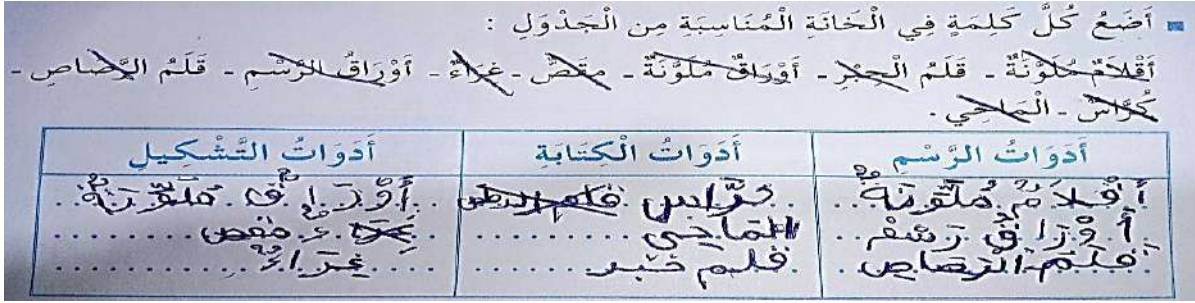 أَضَعُ كُلَّ كَلِمَةٍ فِي الْخَانَةِ الْمُنَاسِبَةِ مِنَ الْجَدْوَلِ :
أَقْلَامٌ مُلَوَّنَةٌ - قَلَمُ الْحِبْرِ - أَوْرَاقٌ مُلَوَّنَةٌ - مِقَصٌّ - غِرَاءٌ - أَوْرَاقُ الرَّسْمِ - قَلَمُ الرَّصَاصِ -
كُرَّاسٌ - الْمَاحِي .
أَدَوَاتُ الرَّسْمِ أَدَوَاتُ الْكِتَابَةِ أَدَوَاتُ التَّشْكِيلِ
أَقْلَامٌ مُلَوَّنَةٌ كرَّاس أَوْرَاقٌ مُلَوَّنَةٌ
أَوْرَاقُ رَسْمْ الماحي مقص
قلم الرصاص قلم حبر غِرَاءٌ